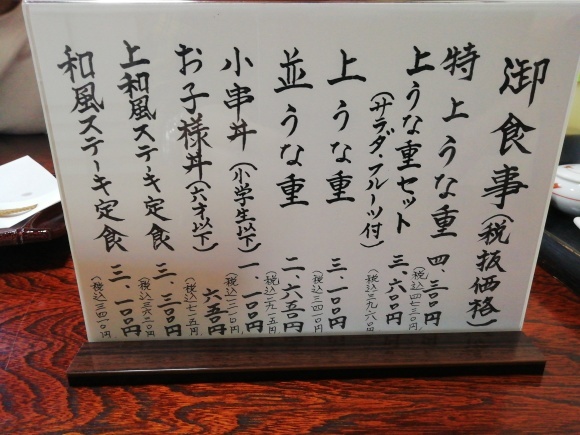 御食事(税抜価格)
特上うな重 四、三〇〇円
(税込四七三〇円)
上うな重セット 三、六〇〇円
(サラダ・フルーツ付) (税込三九六〇円)
上うな重 三、一〇〇円
(税込三四一〇円)
並うな重 二、六五〇円
(税込二九一五円)
小串丼(小学生以下) 一、一〇〇円
(税込一二一〇円)
お子様丼(六才以下) 六五〇円
(税込七一五円)
上和風ステーキ定食 三、三〇〇円
(税込三六三〇円)
和風ステーキ定食 三、一〇〇円
(税込三四一〇円)